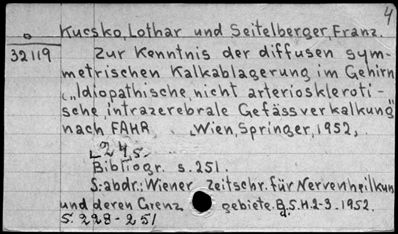 4
Kucsko, Lothar und Seitelberger, Franz.
32119
Zur Kenntnis der diffusen sym-
metrischen Kalkablagerung im Gehirn
("Idiopathische, nicht arterioskleroti-
sche, intrazerebrale Gefässverkalkung"
nach FAHR Wien, Springer, 1952,
24,5.
Bibliogr. s. 251.
S.-abdr.: Wiener Zeitschr. für Nervenheilkun
und deren Grenz gebiete. Bd. 5. H. 2-3. 1952.
S. 228-251